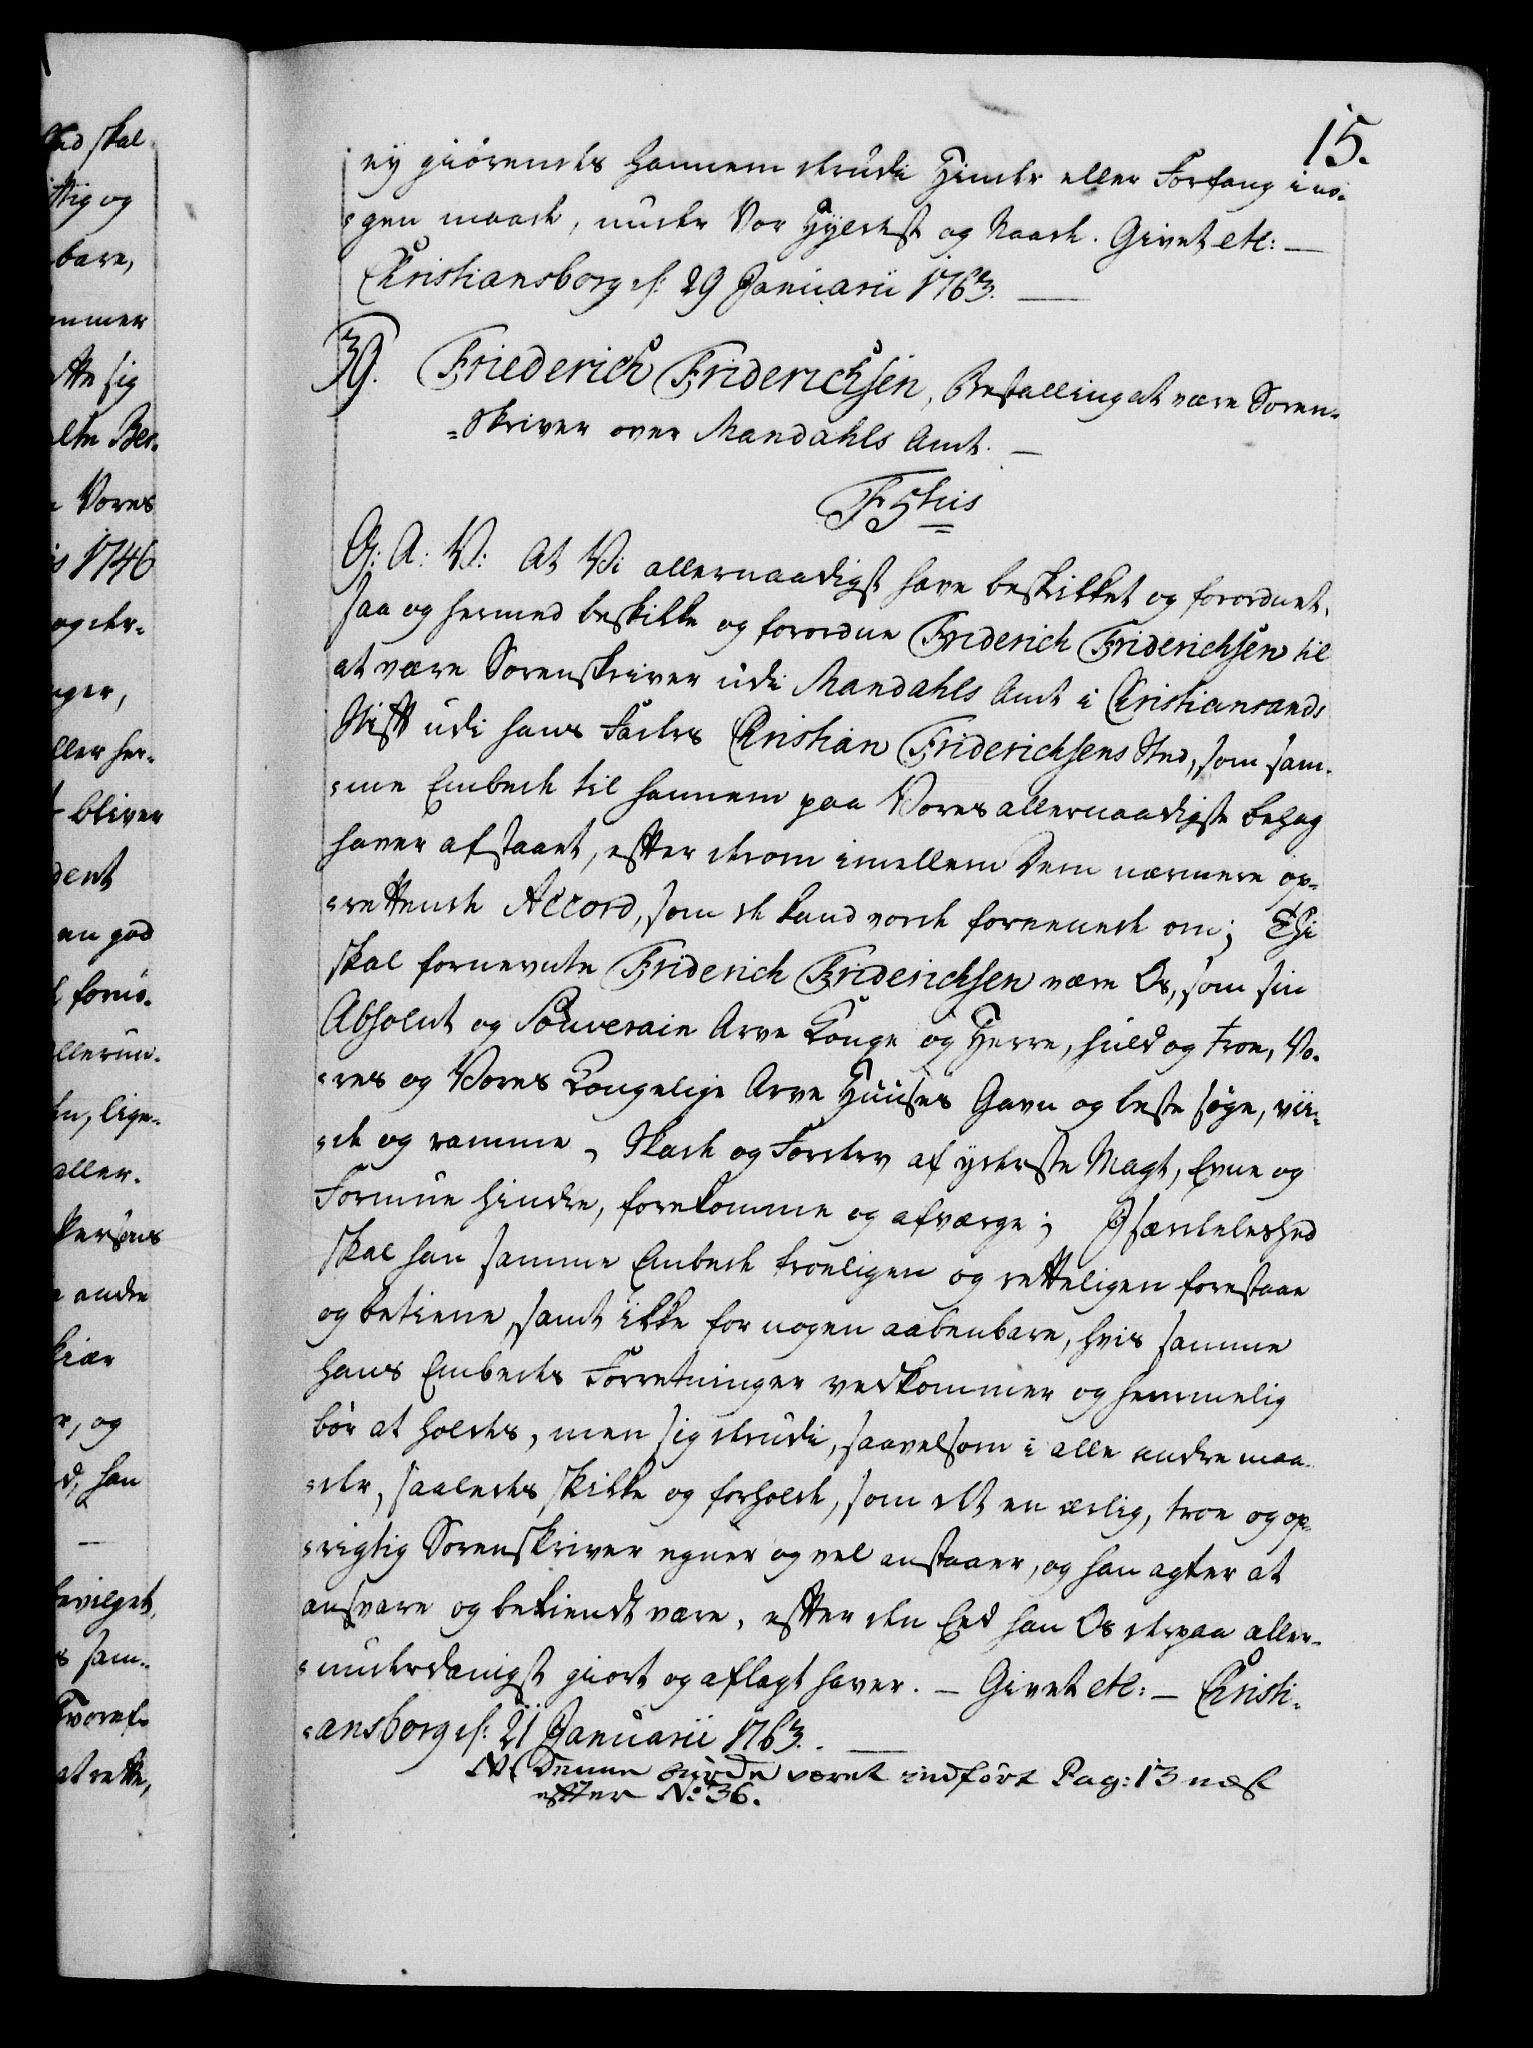 15.
ey giörendes hannem derudi Hinder eller Forfang i no-
=gen maade, under Vor Hyldest og Naade. Givet etc: —
Christiansborg d: 29 Januarii 1763. —
39. Friederich Friderichsen, Bestalling at være Soren-
=skriver over Mandahls Amt. —
F 5tus
G: A: V: At Vi allernaadigst have beskikket og forordnet,
saa og hermed beskikke og forordne Friderich Friderichsen til
at være Sorenskriver udi Mandahls Amt i Christiansands
Stift udi hans Faders Christian Friderichsens Sted, som sam-
=me Embede til hannem paa Vores allernaadigste behag
haver afstaaet, efter derom imellem Dem nærmere op-
=rettende Accord, som de kand vorde foreenede om; Thi
skal fornevnte Friderich Friderichsen være Os, som sin
Absolut og Souverain Arve Konge og Herre, huld og troe, Vo-
=res og Vores Kongelige Arve Huuses Gavn og beste søge, vii-
=de og ramme, Skade og Forderv af yderste Magt, Evne og
Formue hindre, forekomme og afværge; Jsærdeleshed
skal han samme Embede troeligen og retteligen forestaae
og betiene, samt ikke for nogen aabenbare, hvis samme
hans Embedes Forretninger vedkommer og hemmelig
bör at holdes, men sig derudi, saavelsom i alle andre maa-
=der, saaledes skikke og forholde, som det en ærlig, troe og op-
=rigtig Sorenskriver egner og vel anstaaer, og han agter at
ansvare og bekiendt være, efter den Eed han Os derpaa aller-
=underdanigst giort og aflagt haver. — Givet etc: — Christi-
=ansborg d: 21 Januarii 1763. —
NB. Denne burde været indfört Pag: 13 næst
efter No 36.